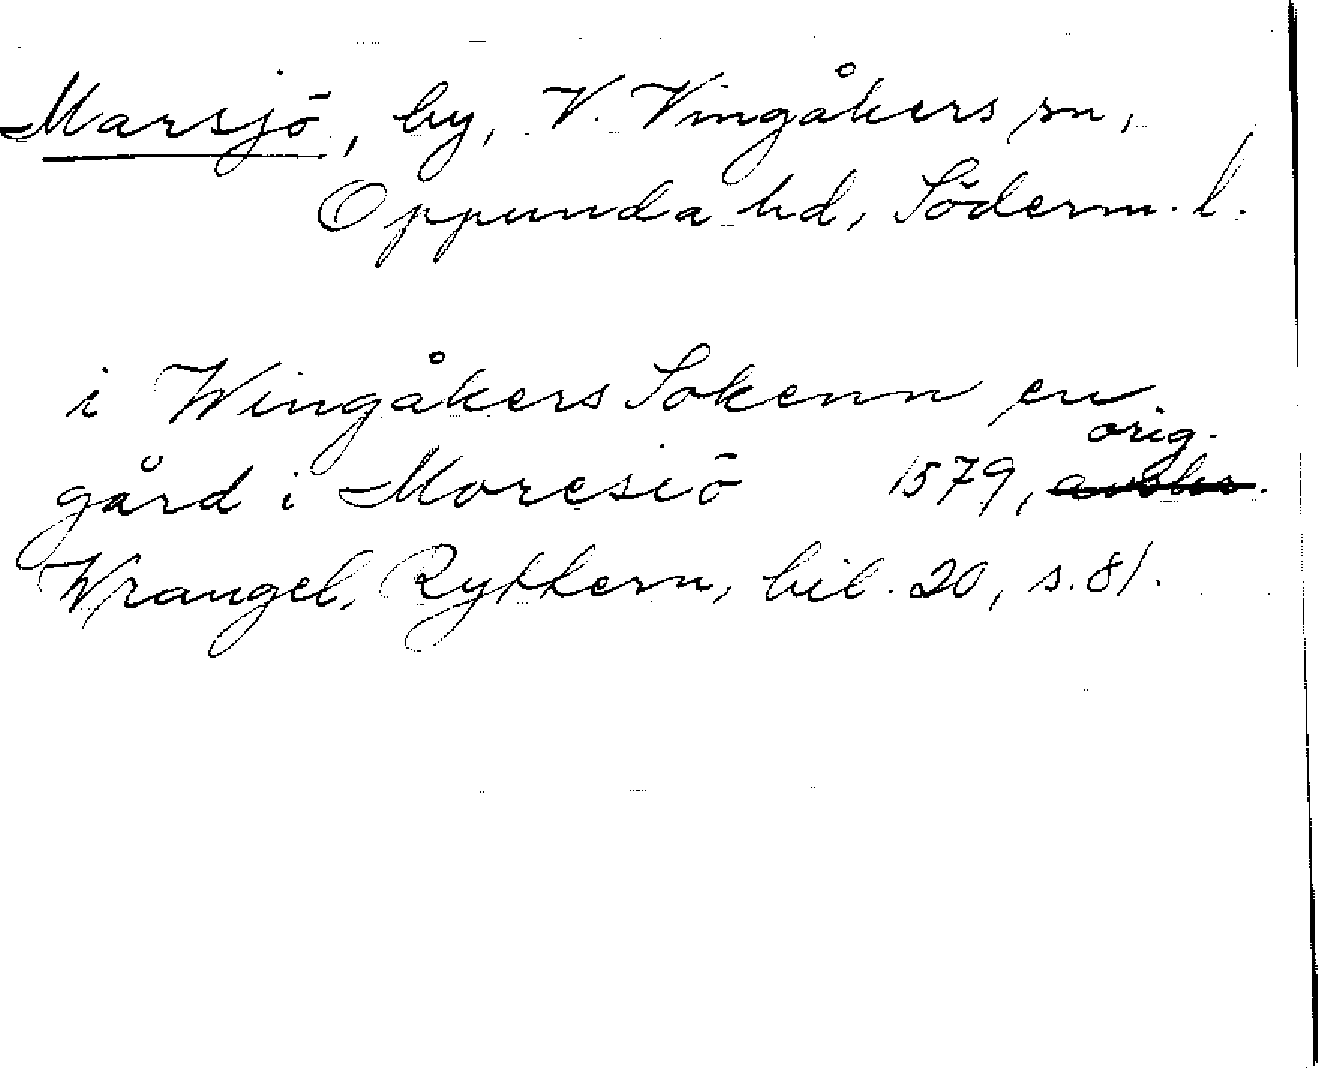 Marsjö, by, V. Vingåkers sn,
Oppunda hd, Söderm. l.
i Wingåkers Sokenn en
gård i Moresiö 1579, orig.
Wrangel, Ryttern, bil. 20, s. 81.